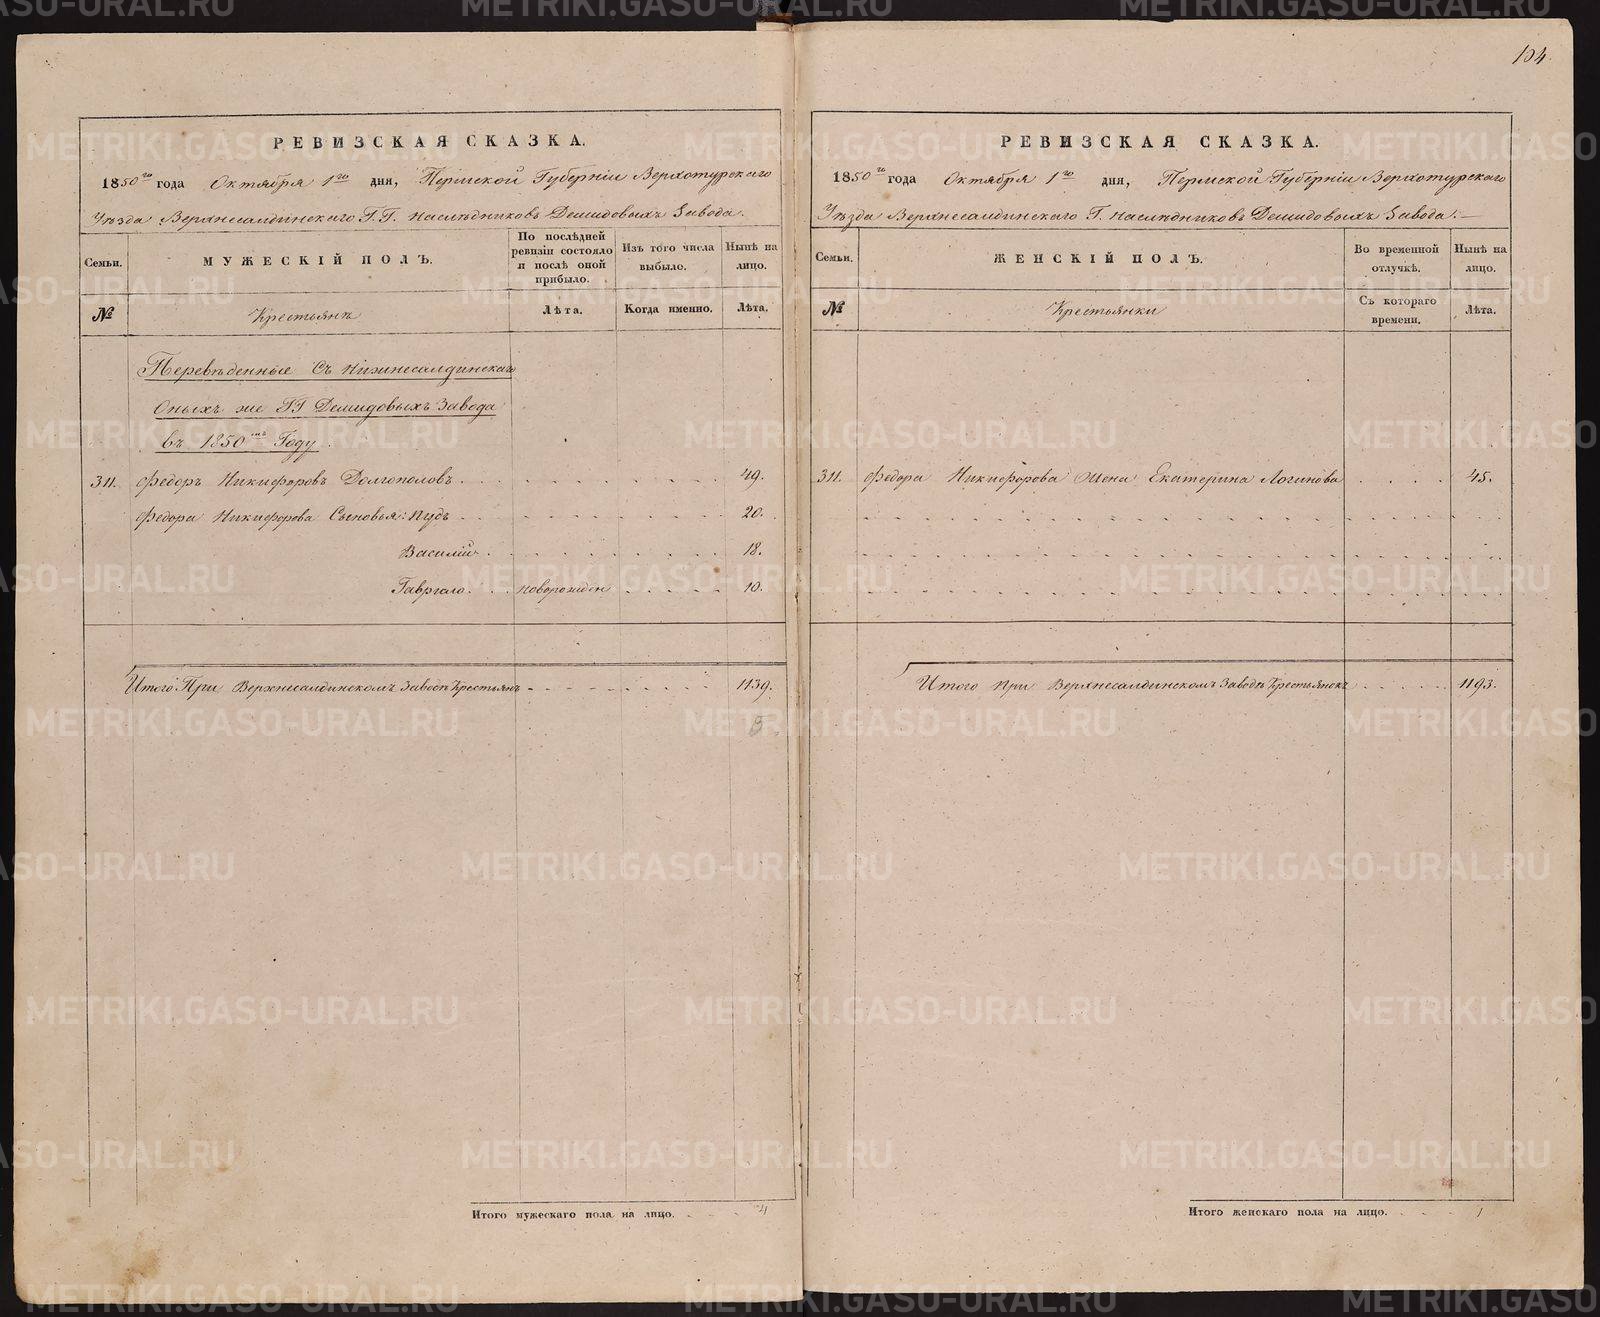 104.
РЕВИЗСКАЯ СКАЗКА.
1850го года Октября 1го дня, Пермской Губерніи Верхотурскаго
Уѣзда Верхнесалдинскаго Г.Г. наслѣдниковъ Демидовыхъ Завода.
Семьи.
МУЖЕСКІЙ ПОЛЪ.
По послѣдней ревизіи состояло и послѣ оной прибыло.
Изъ того числа выбыло.
Нынѣ на лицо.
№
Крестьянъ
Лѣта.
Когда именно.
Лѣта.
Переведенные Съ Нижнесалдинскаго
Оныхъ же ГГ Демидовыхъ Завода
въ 1850мъ Году.
311. Федоръ Никифоровъ Долгополовъ 49.
Федора Никифорова Сыновья: Пудъ 20.
Василій 18.
Гаврило новорожден 10.
Итого При Верхнесалдинскомъ Заводѣ Крестьянъ 1139.
Итого мужескаго пола на лицо. 4
РЕВИЗСКАЯ СКАЗКА.
1850го года Октября 1го дня, Пермской Губерніи Верхотурскаго
Уѣзда Верхнесалдинскаго Г. наслѣдниковъ Демидовыхъ Завода.
Семьи.
ЖЕНСКІЙ ПОЛЪ.
Во временной отлучкѣ.
Нынѣ на лицо.
№
Крестьянки
Съ котораго времени.
Лѣта.
311. Федора Никифорова Жена Екатерина Логинова 45.
Итого при Верхнесалдинскомъ Заводѣ Крестьянокъ 1193.
Итого женскаго пола на лицо. 1
METRIKI.GASO-URAL.RU